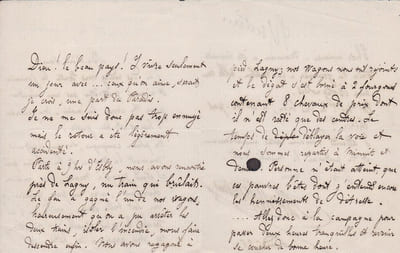 Dieu! le beau pays! Y vivre seulement
un jour avec ... ceux qu'on aime, serait
je crois, une part du Paradis.
Je ne me suis donc pas trop ennuyé
mais le retour a été légèrement
accidenté.
Partis à 9 hrs d'Esbly, nous avons rencontré
près de Lagny, un train qui brûlait.
Le feu a gagné l'un de nos wagons,
heureusement qu'on a pu arrêter les
deux trains, isoler l'incendie, nous faire
descendre enfin. Nous avons regagné à
pied Lagny; nos wagons nous ont rejoints
et le dégât s'est borné à 2 fourgons
contenant 8 chevaux de prix dont
il n'est resté que des cendres. Le
temps de déblayer la voie et
nous sommes repartis à minuit et
demi. Personne n'était atteint que
ces pauvres bêtes dont j'entends encore
les hennissements de détresse.
... Allez donc à la campagne pour
passer deux heures tranquilles et revenir
se coucher de bonne heure.